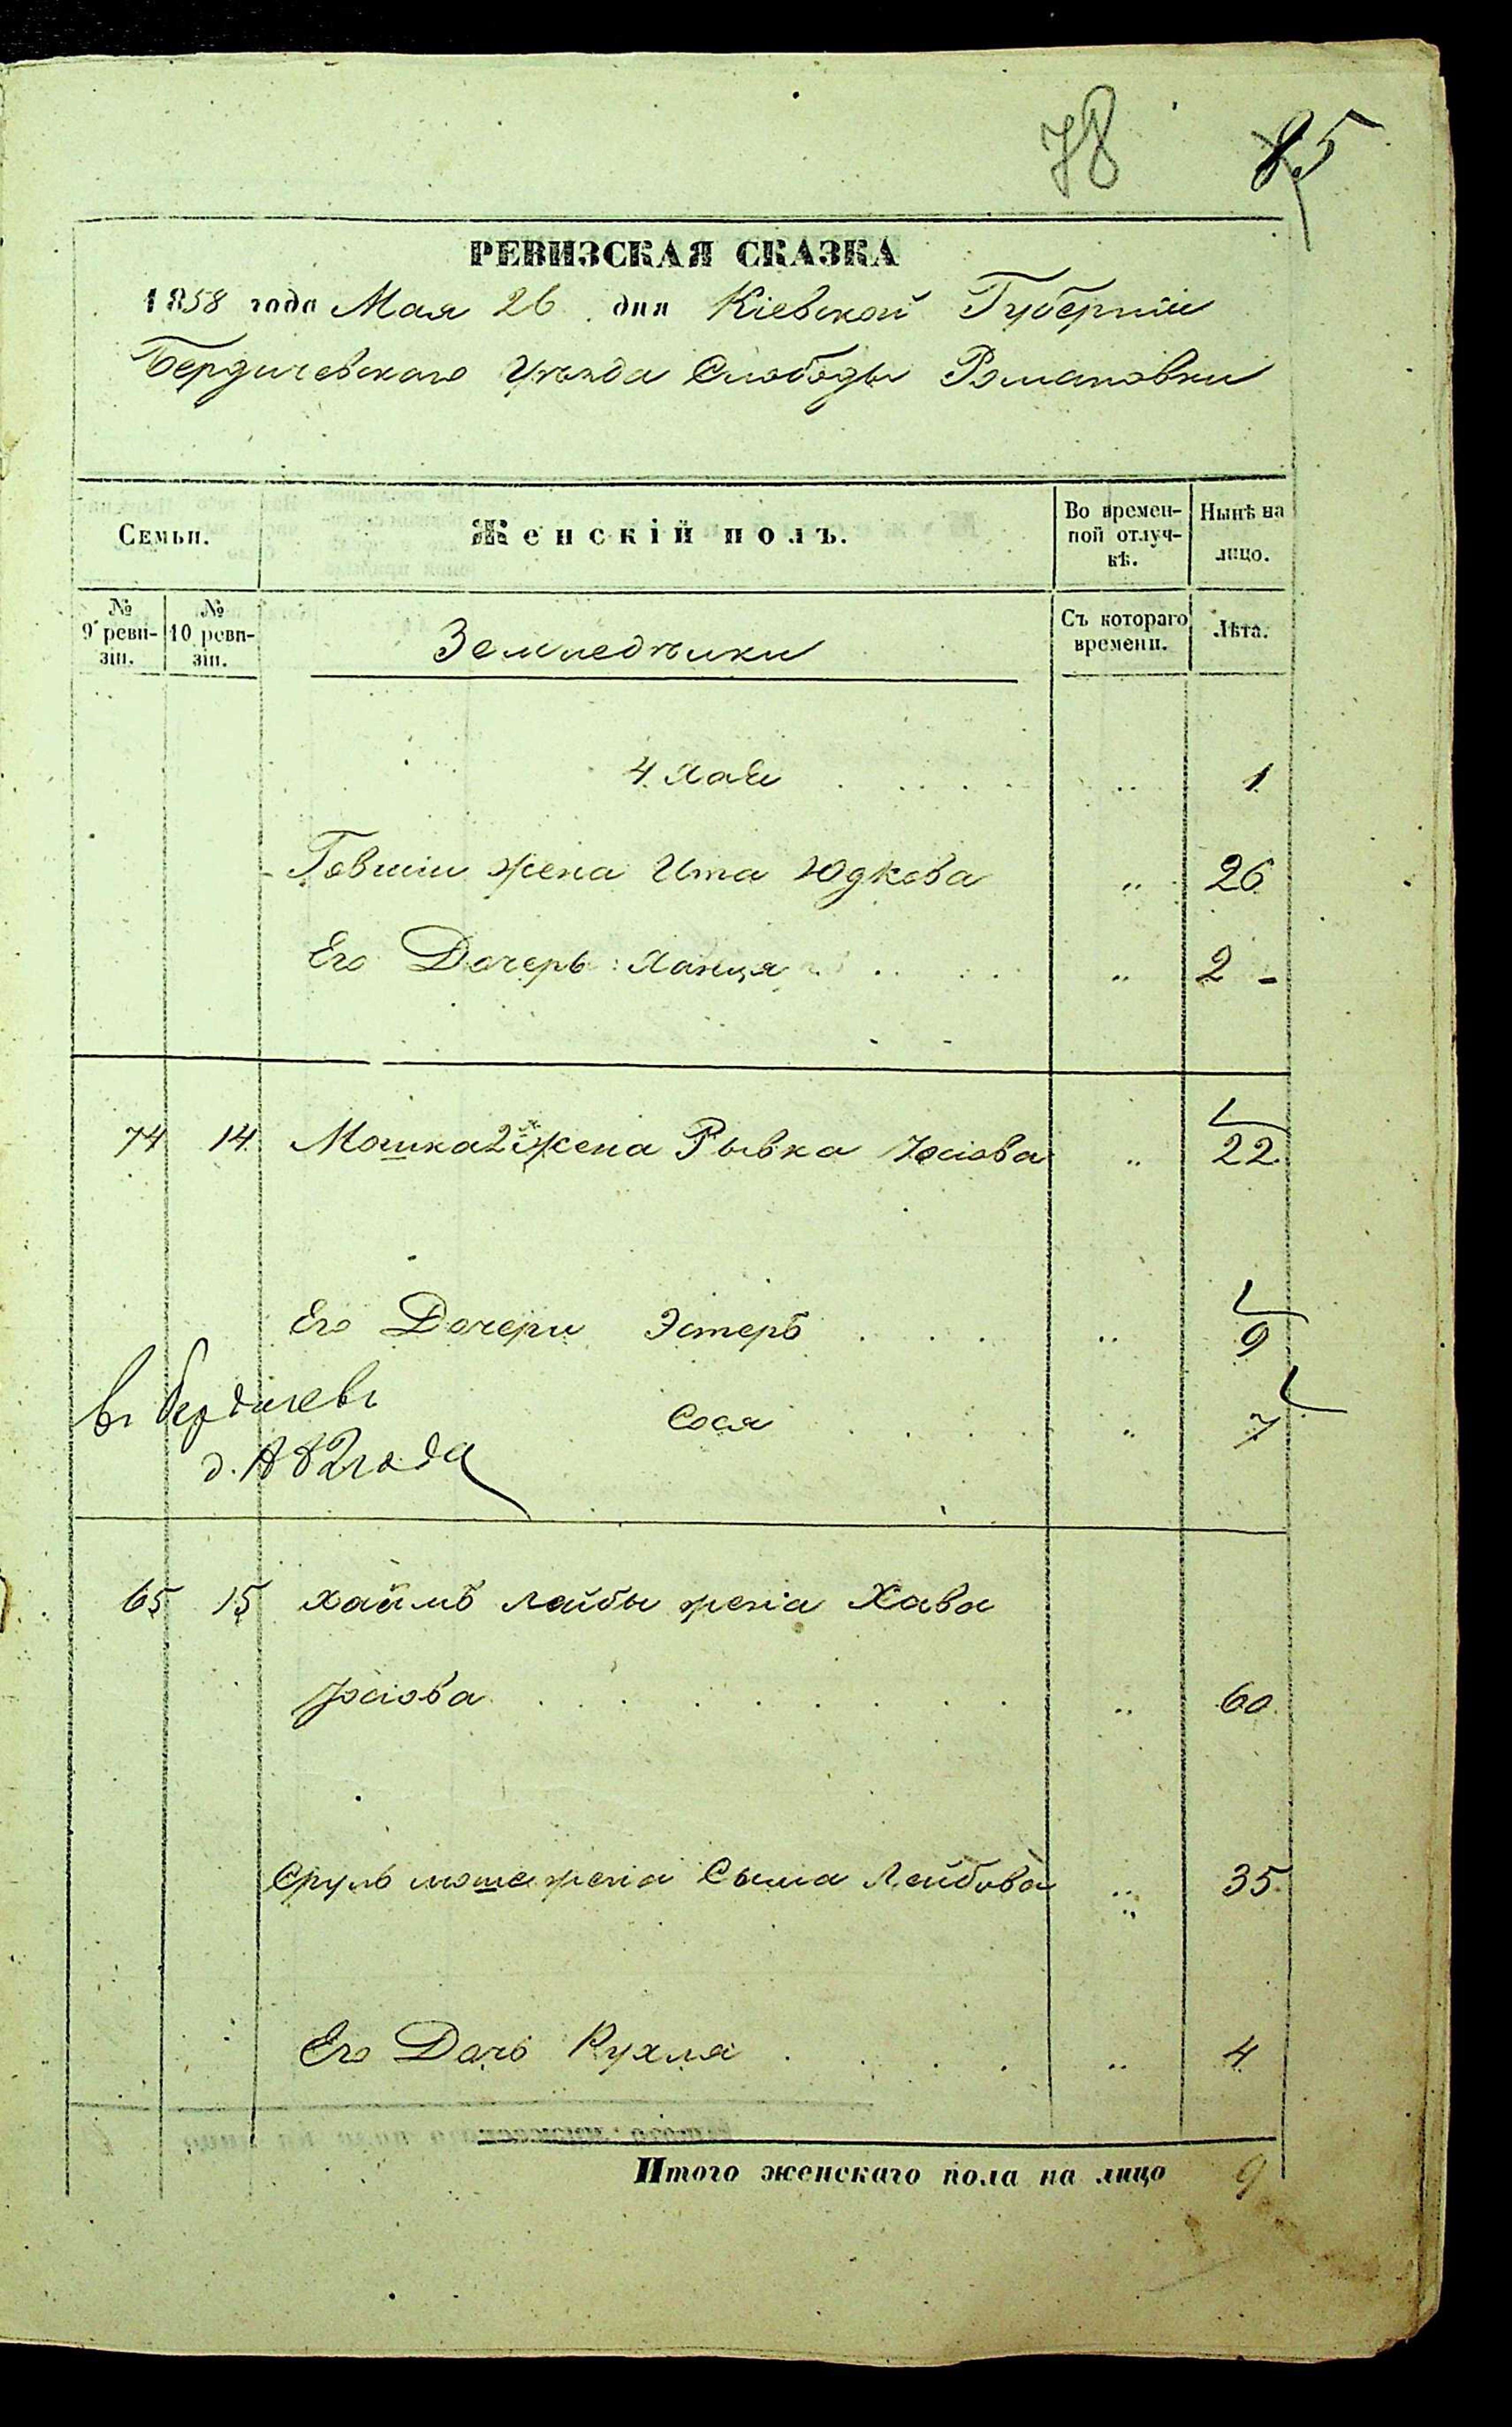 78 85
РЕВИЗСКАЯ СКАЗКА
1858 года Мая 26 дня Кіевской Губерніи
Бердичевскаго Уѣзда Слободы Романовки
Семьи. Женскій полъ. Во временной отлучкѣ. Нынѣ на лицо.
№ 9 ревизіи. № 10 ревизіи. Земледѣльцы Съ котораго времени. Лѣта.
4 Хая „ 1
Говшіи жена Ита Юдкова „ 26
Его Дочерь: Ханця „ 2 -
74 14 Мошка 2я жена Рывка Іосіова „ 22
Его Дочери Эстеръ „ 9
въ Бердичевѣ Сося „ 7
года
65 15 Хаимъ Лейбы жена Хава
Іосіова „ 60
Сруль Мошка жена Сыма Лейбова „ 35
Его Дочь Рухля „ 4
Итого женскаго пола на лицо 9